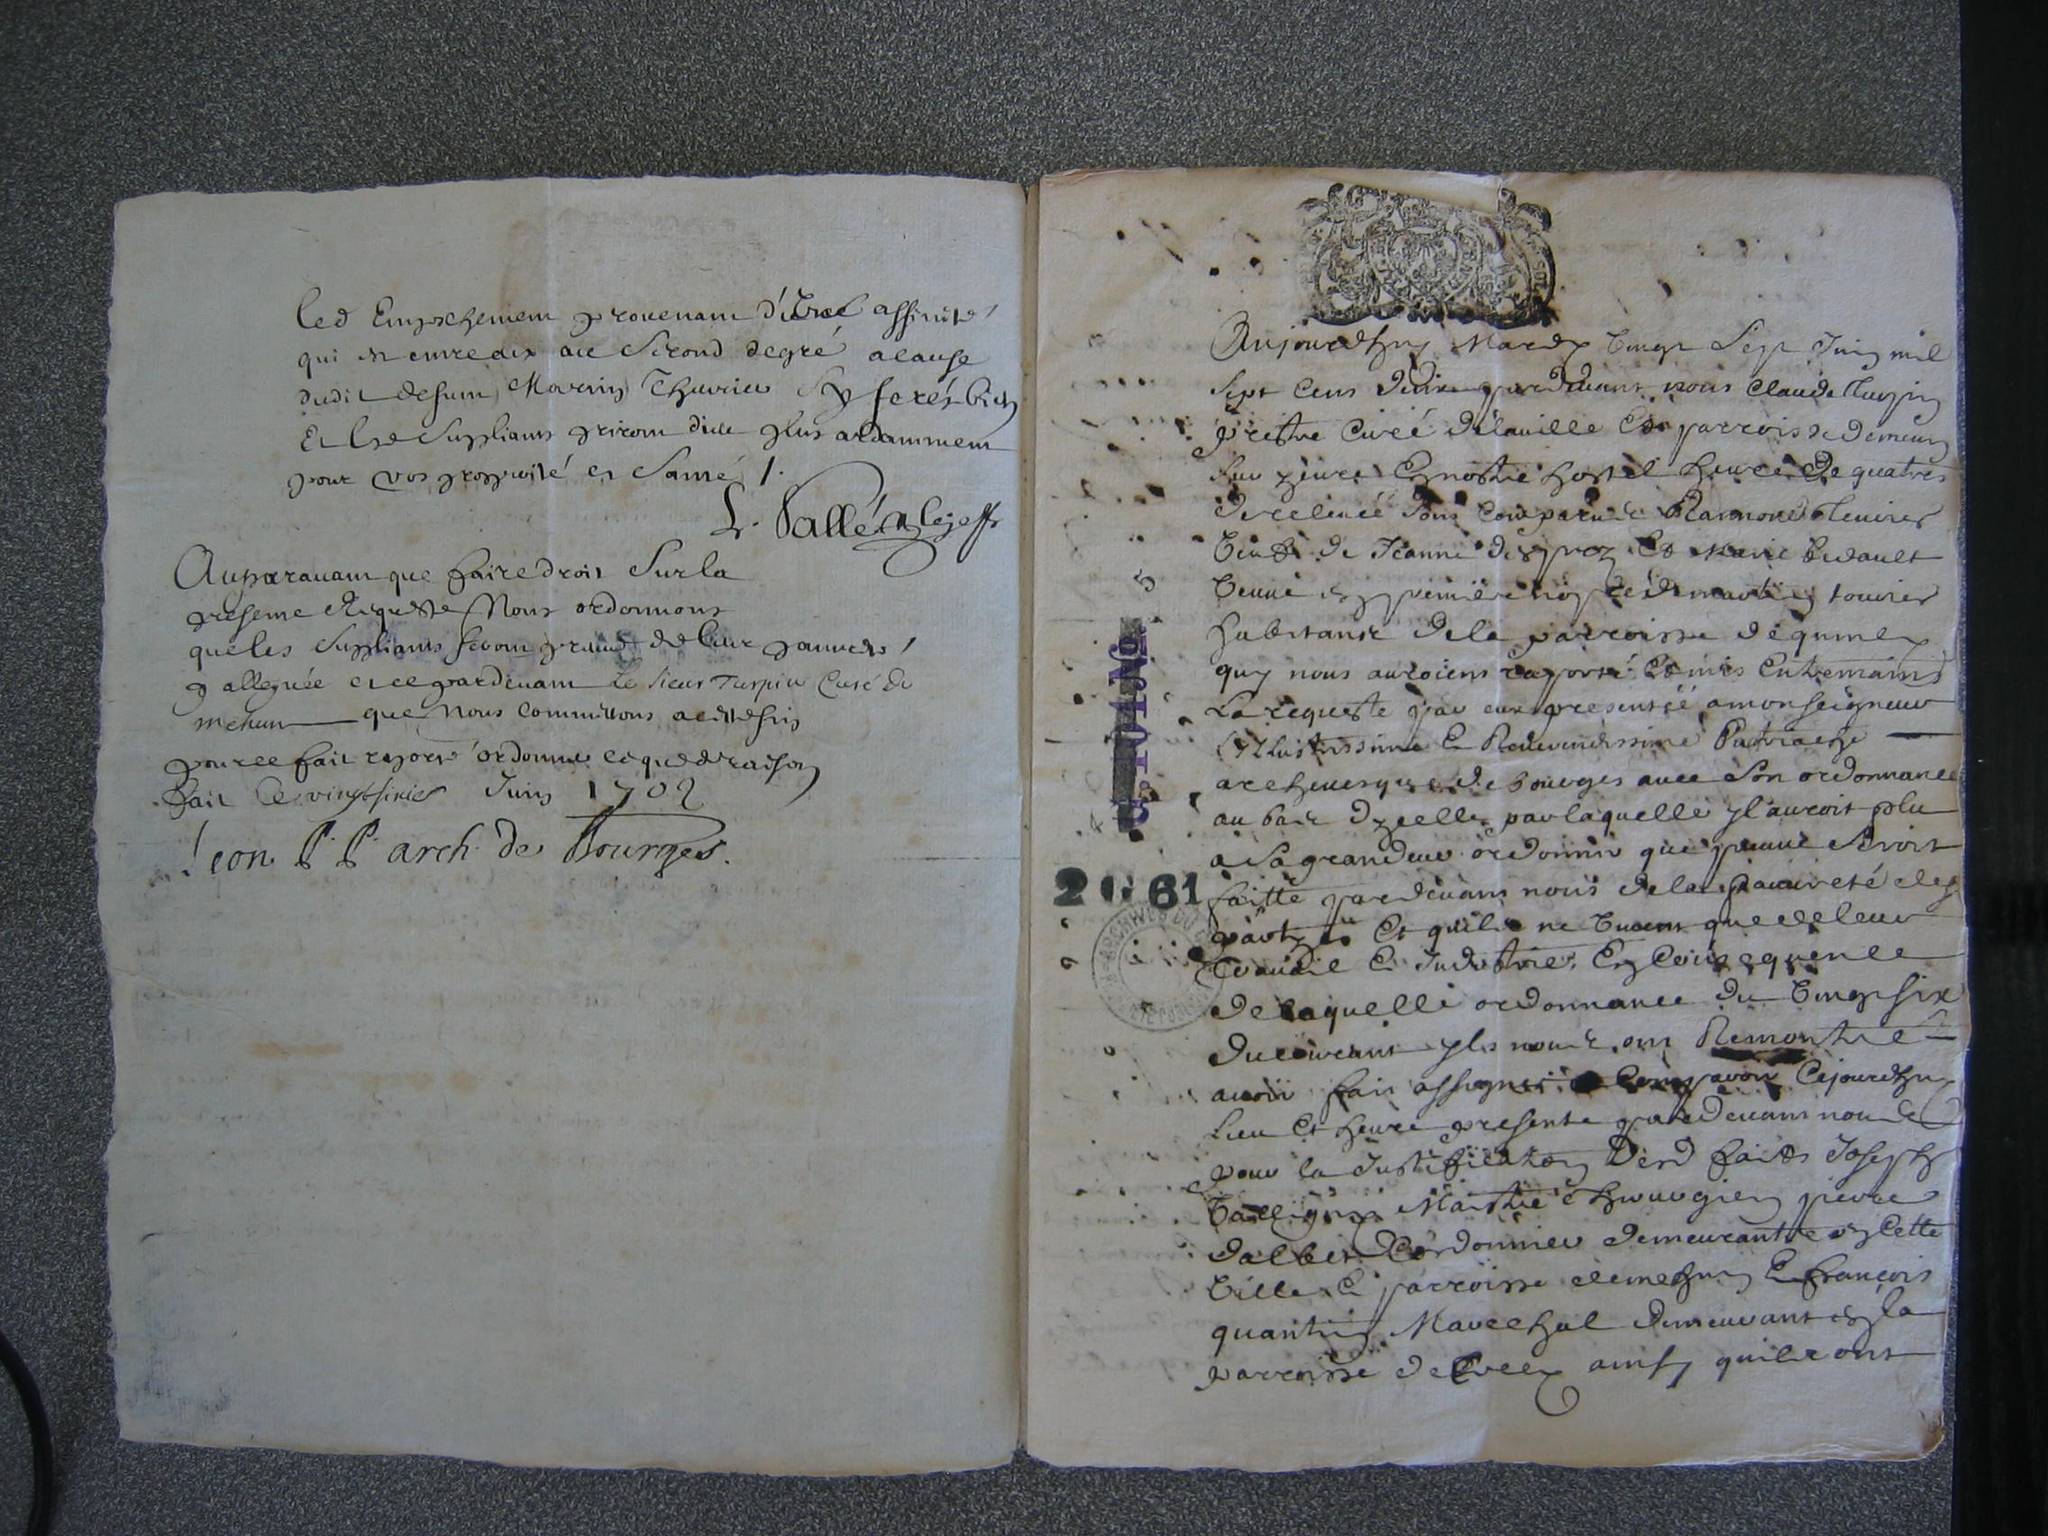 led Empeschement provenant d'icelle affinité
qui est entre eux au second degré a cause
dudit defunt Martin Thevrier Sy ferés bien
Et lesd Suppliants priront dieu plus ardamment
pour vos prosperité et Santé /.
L. Vallée
Auparavant que faire droit Sur la
presente Requeste Nous ordonnons
que les Suppliants feront preuve de leur pauvreté
y alleguée et ce pardevant le Sieur Turpin Curé de
mehun que Nous Commettons a cette fin
pour ce fait raporté ordonner ce que de raison
fait ce vingt sixie Juin 1702
Leon P. P. arch. de Bourges.
Aujourdhuy Mardy vingt Sept Juin mil
Sept Cens deux pardevant nous Claude Turpin
prestre Curé de la ville Et parroisse de mehun
Sur yevre En nostre hostel heure de quatres
de relevée Sont Comparu Teuvier
veuf de Jeanne desprez Et Marie Bedault
veuve en premiere nopce de martin touvier
habitants de la parroisse de quincy
quy nous auroient raporté Et mis Entremains
La requeste par eux presentée a monseigneur
Lillustrissime Et Reverendissime Patriarche
archevesque de bourges avec Son ordonnance
au bas dycelle par laquelle yl auroit plu
a Sa grandeur ordonner que preuve Seroit
faitte pardevant nous de la pauvreté des
partyes Et quils ne vivent que de leur
travail Et Industrie, En Consequence
de laquelle ordonnance du vingt six
du courant yls nous ont Remontré
avoir fait assigner a Comparoir Cejourdhuy
lieu Et heure presente pardevant nous
pour la Justification desd faits Joseph
Maistre Chirurgien pierre
dalbert Cordonnier demeurant en Cette
ville Et parroisse de mehun Et françois
quantin Marechal demeurant en la
parroisse de ainsy quils ont
2 G 61